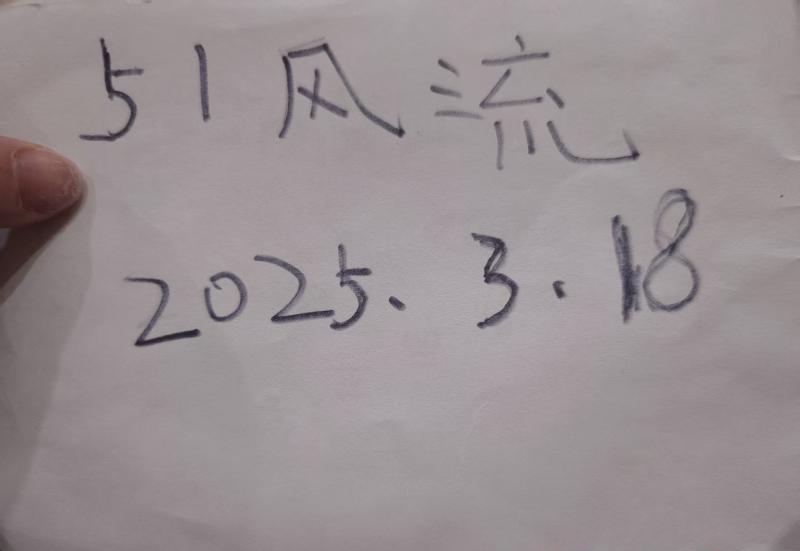 51风流
2025.3.18